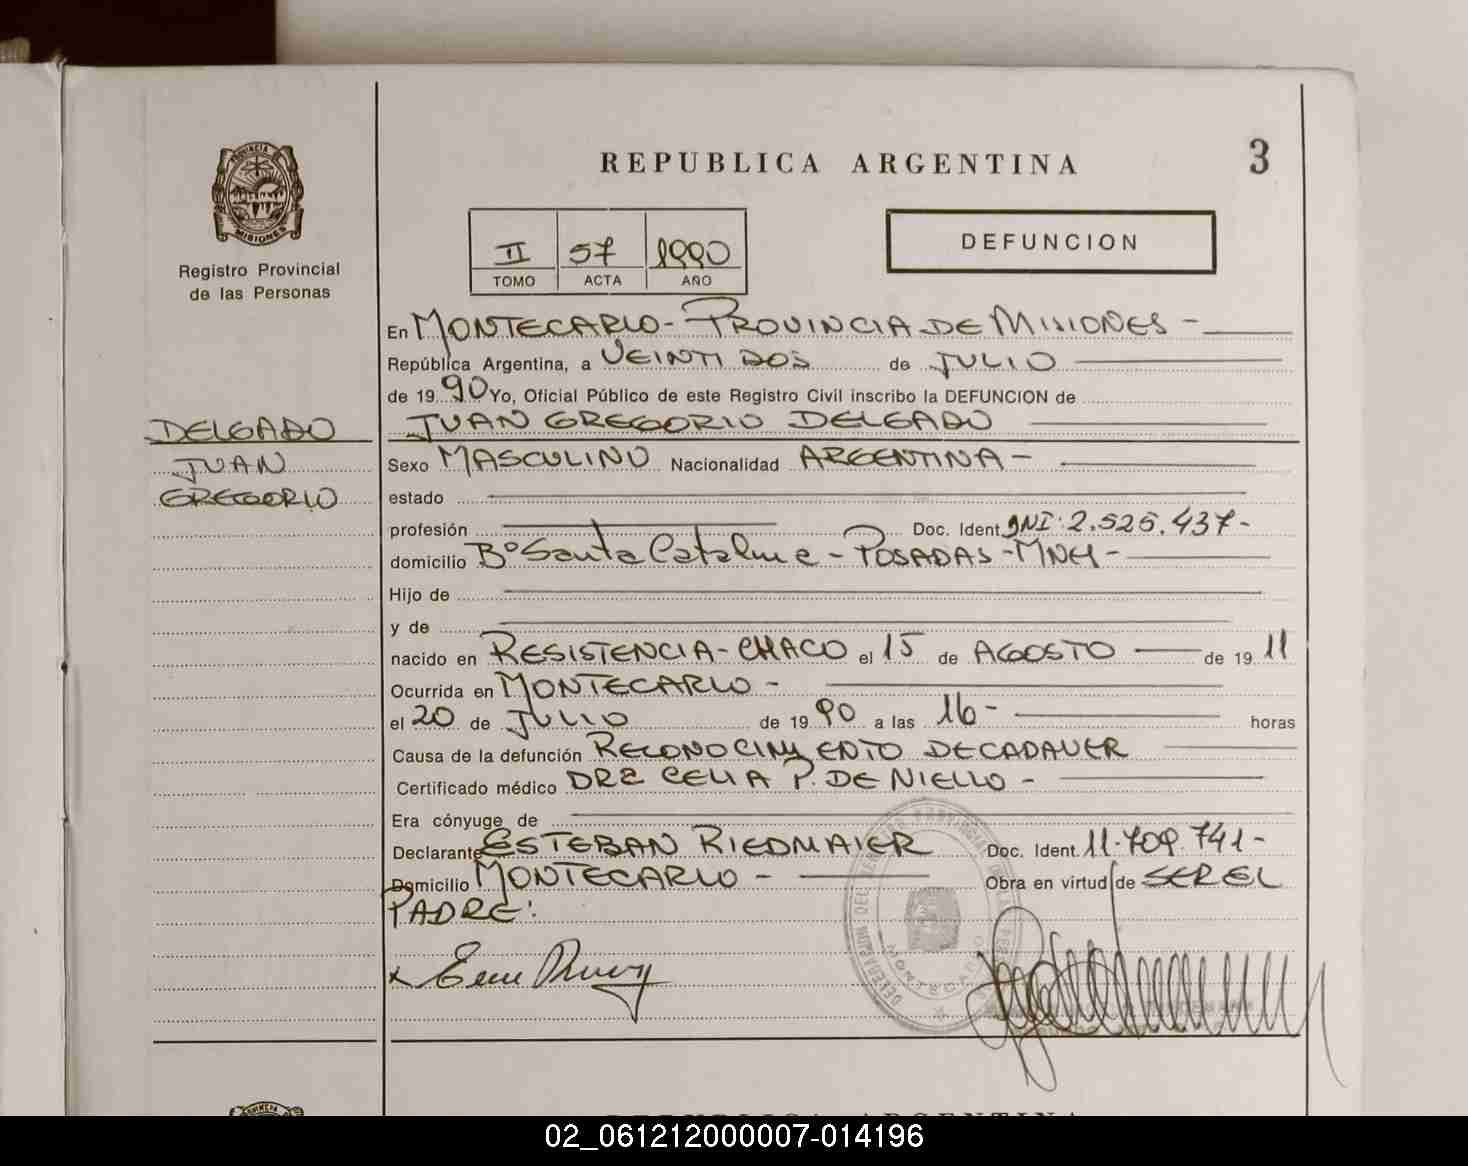 PROVINCIA
MISIONES
Registro Provincial
de las Personas
REPUBLICA ARGENTINA
3
II 57 1990
TOMO ACTA AÑO
DEFUNCION
En MONTECARLO - PROVINCIA DE MISIONES -
República Argentina, a VEINTIDOS de JULIO
de 19 90 Yo, Oficial Público de este Registro Civil inscribo la DEFUNCION de
DELGADO JUAN GREGORIO DELGADO
JUAN Sexo MASCULINO Nacionalidad ARGENTINA -
GREGORIO estado
profesión Doc. Ident. DNI: 2.525.437-
domicilio Bº Santa Catalina - POSADAS - MNES -
Hijo de
y de
nacido en RESISTENCIA - CHACO el 15 de AGOSTO de 19 11
Ocurrida en MONTECARLO -
el 20 de JULIO de 19 90 a las 16 - horas
Causa de la defunción RECONOCIMIENTO DE CADAVER
Certificado médico DRA CELIA P. DE NIELLO -
Era cónyuge de
Declarante ESTEBAN RIEDMAIER Doc. Ident. 11.709.741-
Domicilio MONTECARLO - Obra en virtud de SER EL
PADRE:
MONTECARLO
REPUBLICA ARGENTINA
02_061212000007-014196